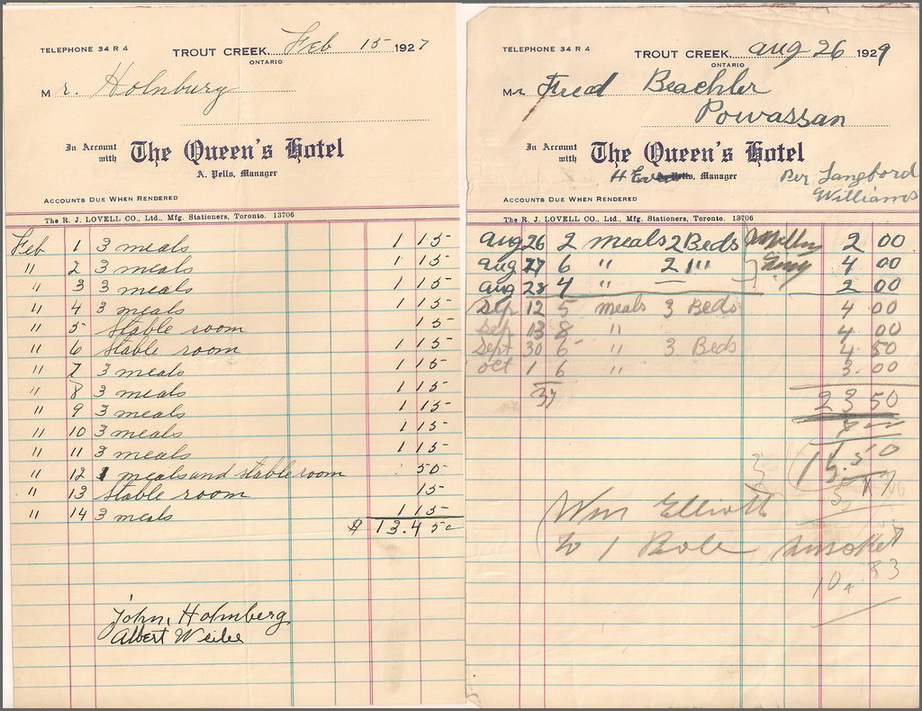 TELEPHONE 34 R 4
TROUT CREEK, Feb 15 1927
ONTARIO
Mr. Holmburg
In Account with The Queen's Hotel
A. Pells, Manager
ACCOUNTS DUE WHEN RENDERED
The R. J. LOVELL CO., Ltd., Mfg. Stationers, Toronto. 13706
Feb 1 3 meals 1 15
" 2 3 meals 1 15
" 3 3 meals 1 15
" 4 3 meals 1 15
" 5 Stable room 15
" 6 Stable room 1 15
" 7 3 meals 1 15
" 8 3 meals 1 15
" 9 3 meals 1 15
" 10 3 meals 1 15
" 11 3 meals 1 15
" 12 1 meals and stable room 50
" 13 Stable room 15
" 14 3 meals 1 15
$ 13.45
John Holmberg
Albert
TELEPHONE 34 R 4
TROUT CREEK, Aug 26 1929
ONTARIO
Mr Fred Beachler
Powassan
In Account with The Queen's Hotel
Manager
Per Langford
Williams
ACCOUNTS DUE WHEN RENDERED
The R. J. LOVELL CO., Ltd., Mfg. Stationers, Toronto. 13706
Aug 26 2 meals 2 Beds 2 00
Aug 27 6 " 2 " 4 00
Aug 28 4 " — 2 00
Sep 12 5 meals 3 Beds 4 00
Sep 13 8 " 4 00
Sept 30 6 " 3 Beds 4 50
Oct 1 6 " 3.00
37
23 50
Wm Elliott
to 1 Bole